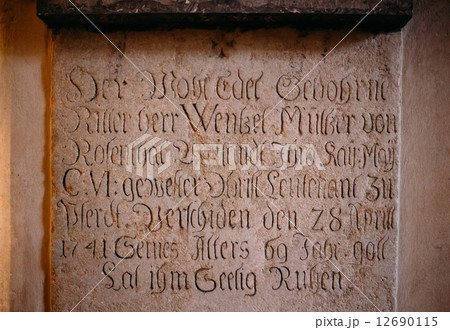 Der Wohl Edel Gebohrne
Ritter herr Wentzel Müntzer von
Rosenthal
C. VI: gewester Leutenant Zu
Pferdt. Verschiden den 28 Aprill
1741 Seines Alters 69 Jahr. gott
Laß ihm Seelig Ruhen
PIXTA
12690115